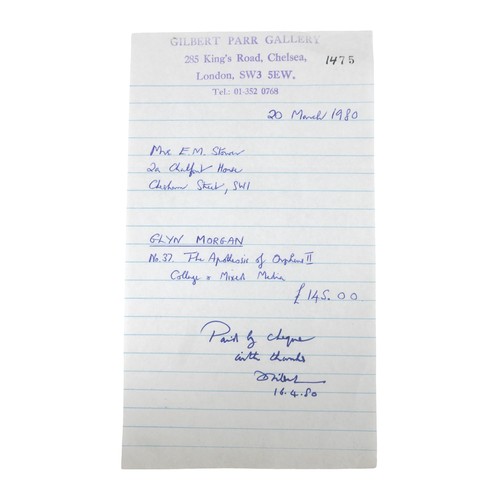 GILBERT PARR GALLERY
285 King's Road, Chelsea,
London, SW3 5EW.
Tel.: 01-352 0768
1475
20 March 1980
E.M.
2a Chalfont House
Chesham Street, SW1
GLYN MORGAN
No. 37. The Apotheosis of Orpheus II
Collage & Mixed Media
£145.00
Paid by cheque
with thanks
16.4.80